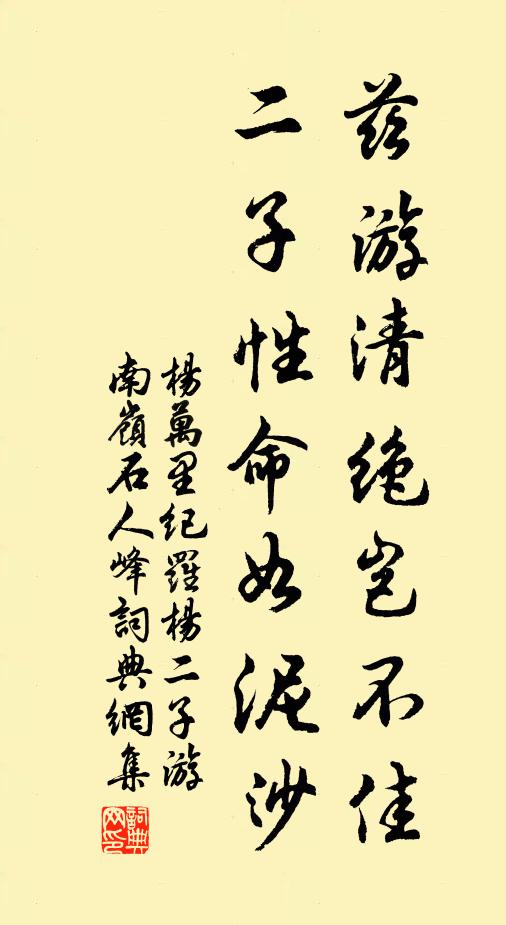 茲游清絶豈不佳
二子性命如泥沙
楊萬里紀羅楊二子游
南嶺石人峰詞典網集
詞典網印